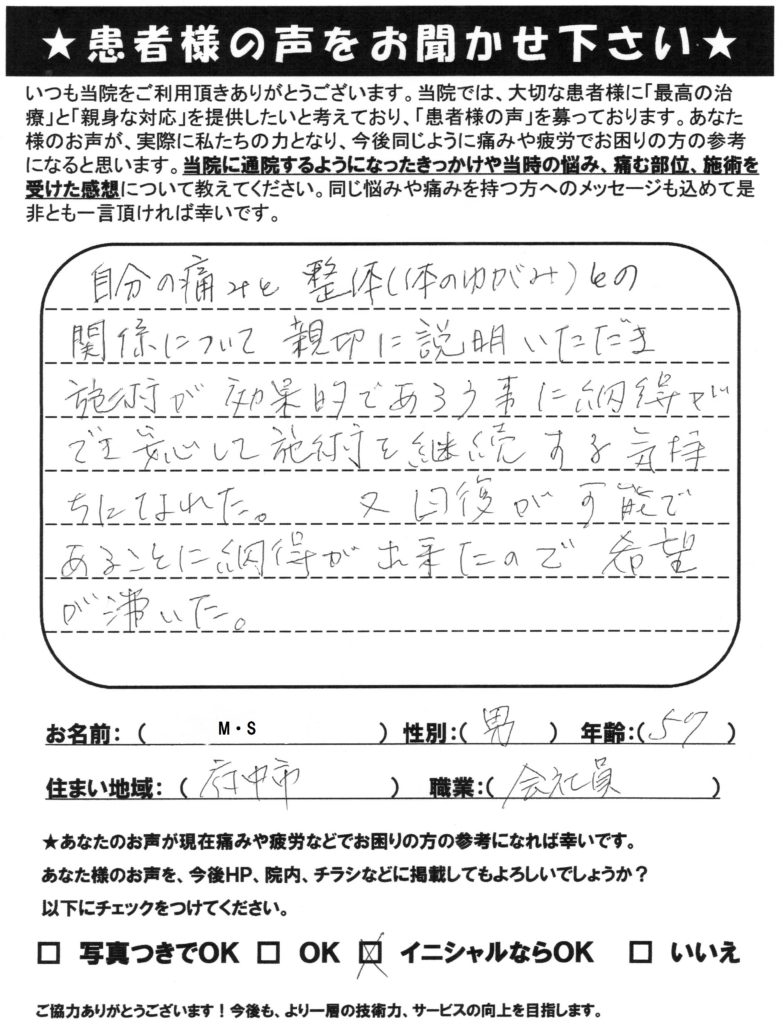 ★患者様の声をお聞かせ下さい★
いつも当院をご利用頂きありがとうございます。当院では、大切な患者様に「最高の治
療」と「親身な対応」を提供したいと考えており、「患者様の声」を募っております。あなた
様のお声が、実際に私たちの力となり、今後同じように痛みや疲労でお困りの方の参考
になると思います。当院に通院するようになったきっかけや当時の悩み、痛む部位、施術を
受けた感想について教えてください。同じ悩みや痛みを持つ方へのメッセージも込めて是
非とも一言頂ければ幸いです。
自分の痛みと整体(体のゆがみ)との
関係について親切に説明いただき
施術が効果的であろう事に納得が
でき安心して施術を継続する気持
ちになれた。 又回復が可能で
あることに納得が出来たので希望
が沸いた。
お名前：（ M・S ） 性別：（ 男 ） 年齢：（ 57 ）
住まい地域：（ 府中市 ） 職業：（ 会社員 ）
★あなたのお声が現在痛みや疲労などでお困りの方の参考になれば幸いです。
あなた様のお声を、今後HP、院内、チラシなどに掲載してもよろしいでしょうか？
以下にチェックをつけてください。
□ 写真つきでOK □ OK ☒ イニシャルならOK □ いいえ
ご協力ありがとうございます！今後も、より一層の技術力、サービスの向上を目指します。